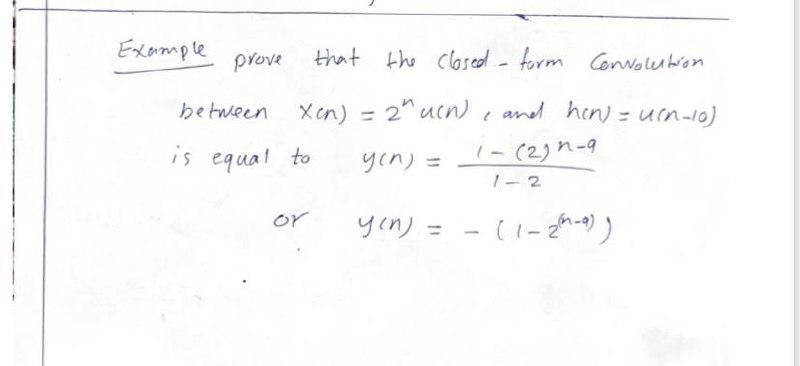 Example prove that the closed-form Convolution
between x(n) = 2ⁿ u(n) , and h(n) = u(n-10)
is equal to y(n) = (1 - (2)ⁿ⁻⁹) / (1 - 2)
or y(n) = - (1 - 2⁽ⁿ⁻⁹⁾)